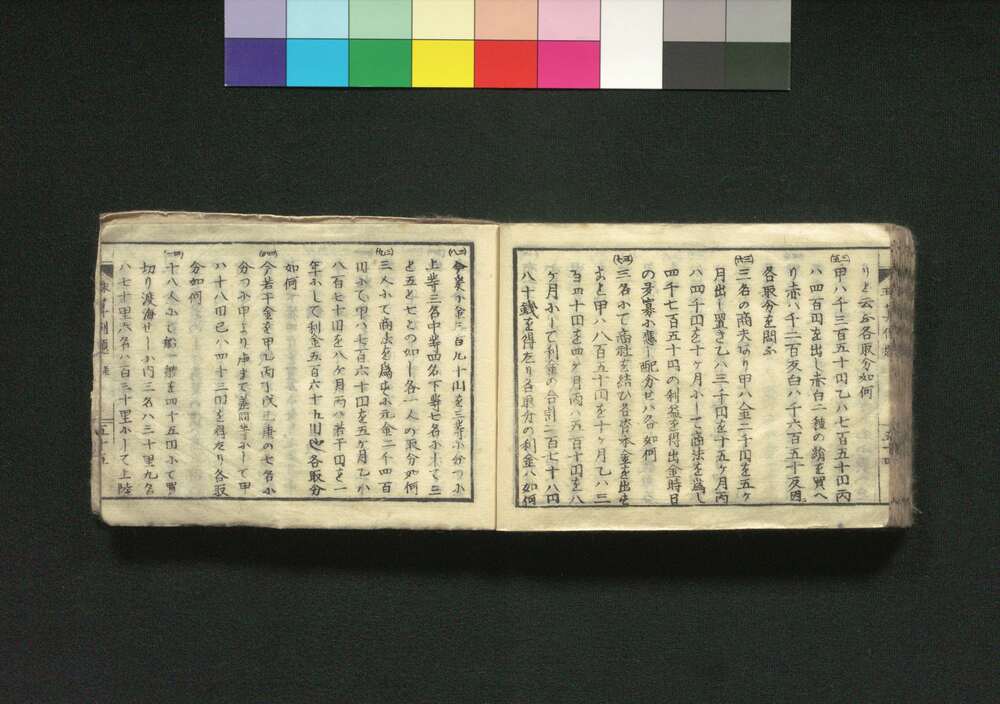 りと云ふ各取分如何
(二五)
甲ハ千三百五十円乙ハ七百五十円丙
ハ四百円を出し赤白二種の諭を買へ
り赤ハ千二百反白ハ千六百五十反因
各取分を問ふ
(二六)
三名の商夫あり甲ハ金二千円を五ヶ
月出し置き乙ハ三千円を十五ヶ月丙
ハ四千円を十ヶ月小して商法を為し
四千七百五十円の利益を得出金時日
の多寡小應し配分せハ各如何
(二七)
三名小て商社を結ひ各資本金を出せ
しと甲ハ八百五十円を十ヶ月乙ハ三
百四十円を四ヶ月丙ハ五百十円を八
ヶ月小して利金の合計二百七十八円
八十錢を得たり各取分の利金ハ如何
(二八)
今米小金三百九十円を三等小分つ小
上等三名中等四名下等七名小して三
と五と七との如し各一人の取分如何
(二九)
三人小て商法を為せ小元金二千四百
円小て甲ハ七百六十円を五ヶ月乙ハ
八百七十円を八ヶ月丙ハ若干円を一
年小して利金五百六十九円也各取分
如何
(四十)
今若干金を甲乙丙丁戊己庚の七名小
分つ小甲より庚まて差同等小して甲
ハ十八円己ハ四十三円を得たり各取
分如何
(一四)
十八人小て船一艘を四十五円小て買
切り渡海せし小内三名ハ三十里九名
ハ七十里六名ハ百三十里小して上陸
五十五